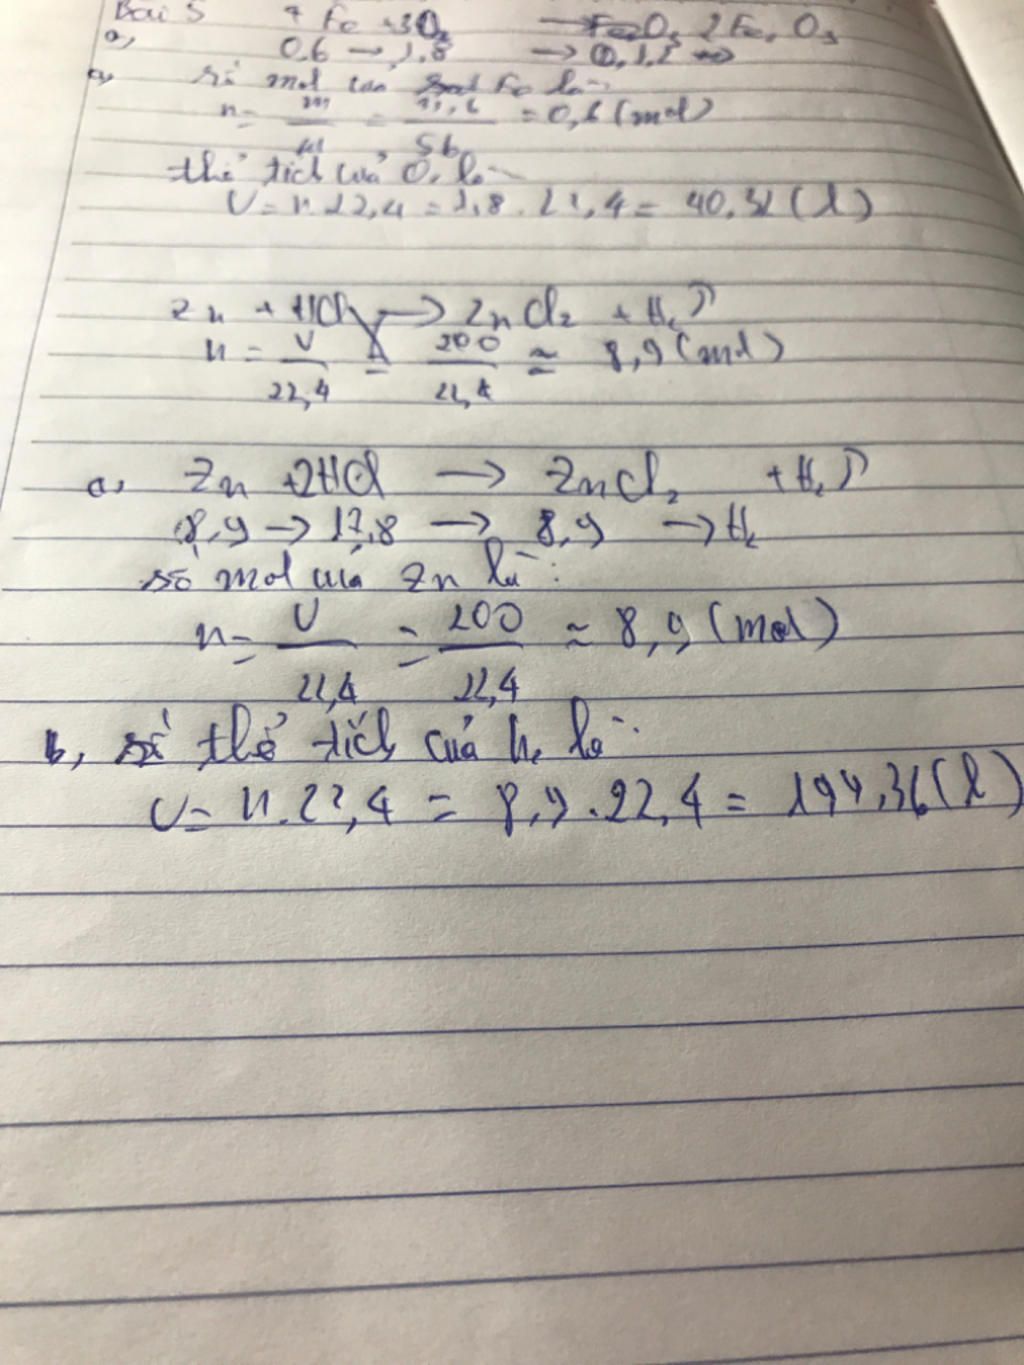 Bài 5 4 Fe + 3O2 → 2 Fe2 O3
a,
0,6 → 1,8 → 1,2
a, số mol của Fe là:
n = m/M = /56 = 0,6 (mol)
thể tích của O2 là:
V = n.22,4 = 1,8 . 22,4 = 40,32 (l)
Zn + HCl → ZnCl2 + H2 ↑
n = V/22,4 = 200/22,4 ≈ 8,9 (mol)
a, Zn + 2HCl → ZnCl2 + H2 ↑
8,9 → 17,8 → 8,9 → H2
số mol của Zn là:
n = V/22,4 = 200/22,4 ≈ 8,9 (mol)
b, thể tích của h2 là:
V = n.22,4 = 8,9 . 22,4 = 199,36 (l)